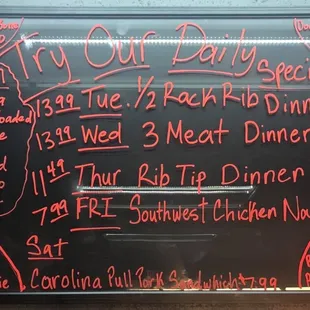 Try Our Daily Speci
13 99 Tue. 1/2 Rack Rib Dinn
13 99 Wed 3 Meat Dinner
11 49 Thur Rib Tip Dinner
7 99 FRI Southwest Chicken Na
Sat
Carolina Pull Pork Sandwhich $7.99
oaded